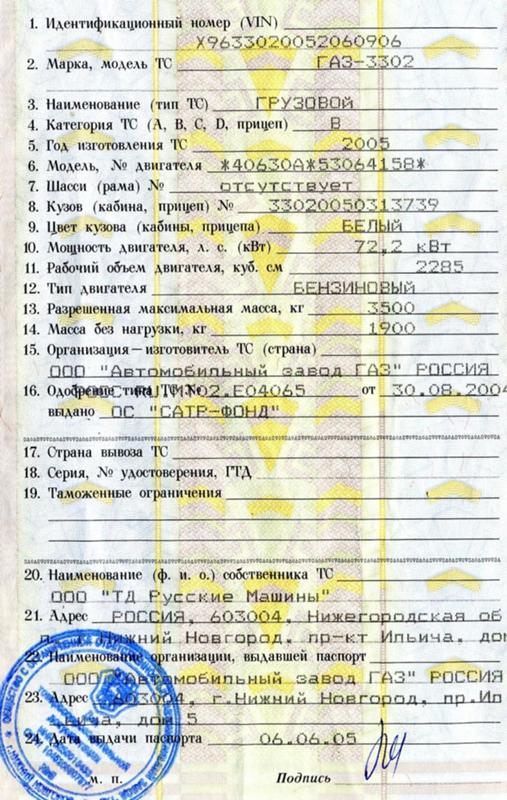 1. Идентификационный номер (VIN)
X9633020052060906
2. Марка, модель ТС ГАЗ-3302
3. Наименование (тип ТС) ГРУЗОВОЙ
4. Категория ТС (A, B, C, D, прицеп) B
5. Год изготовления ТС 2005
6. Модель, № двигателя *40630A*53064158*
7. Шасси (рама) № отсутствует
8. Кузов (кабина, прицеп) № 33020050313739
9. Цвет кузова (кабины, прицепа) БЕЛЫЙ
10. Мощность двигателя, л. с. (кВт) 72,2 кВт
11. Рабочий объем двигателя, куб. см 2285
12. Тип двигателя БЕНЗИНОВЫЙ
13. Разрешенная максимальная масса, кг 3500
14. Масса без нагрузки, кг 1900
15. Организация—изготовитель ТС (страна)
ООО "Автомобильный завод ГАЗ" РОССИЯ
16. Одобрение типа ТС № 02.E04065 от 30.08.2004
выдано ОС "САТР-ФОНД"
17. Страна вывоза ТС
18. Серия, № удостоверения, ГТД
19. Таможенные ограничения
20. Наименование (ф. и. о.) собственника ТС
ООО "ТД Русские Машины"
21. Адрес РОССИЯ, 603004, Нижегородская об
г. Нижний Новгород, пр-кт Ильича, дом
22. Наименование организации, выдавшей паспорт
ООО "Автомобильный завод ГАЗ" РОССИЯ
23. Адрес 603004, г.Нижний Новгород, пр.Ил
ьича, дом 5
24. Дата выдачи паспорта 06.06.05
м. п. Подпись